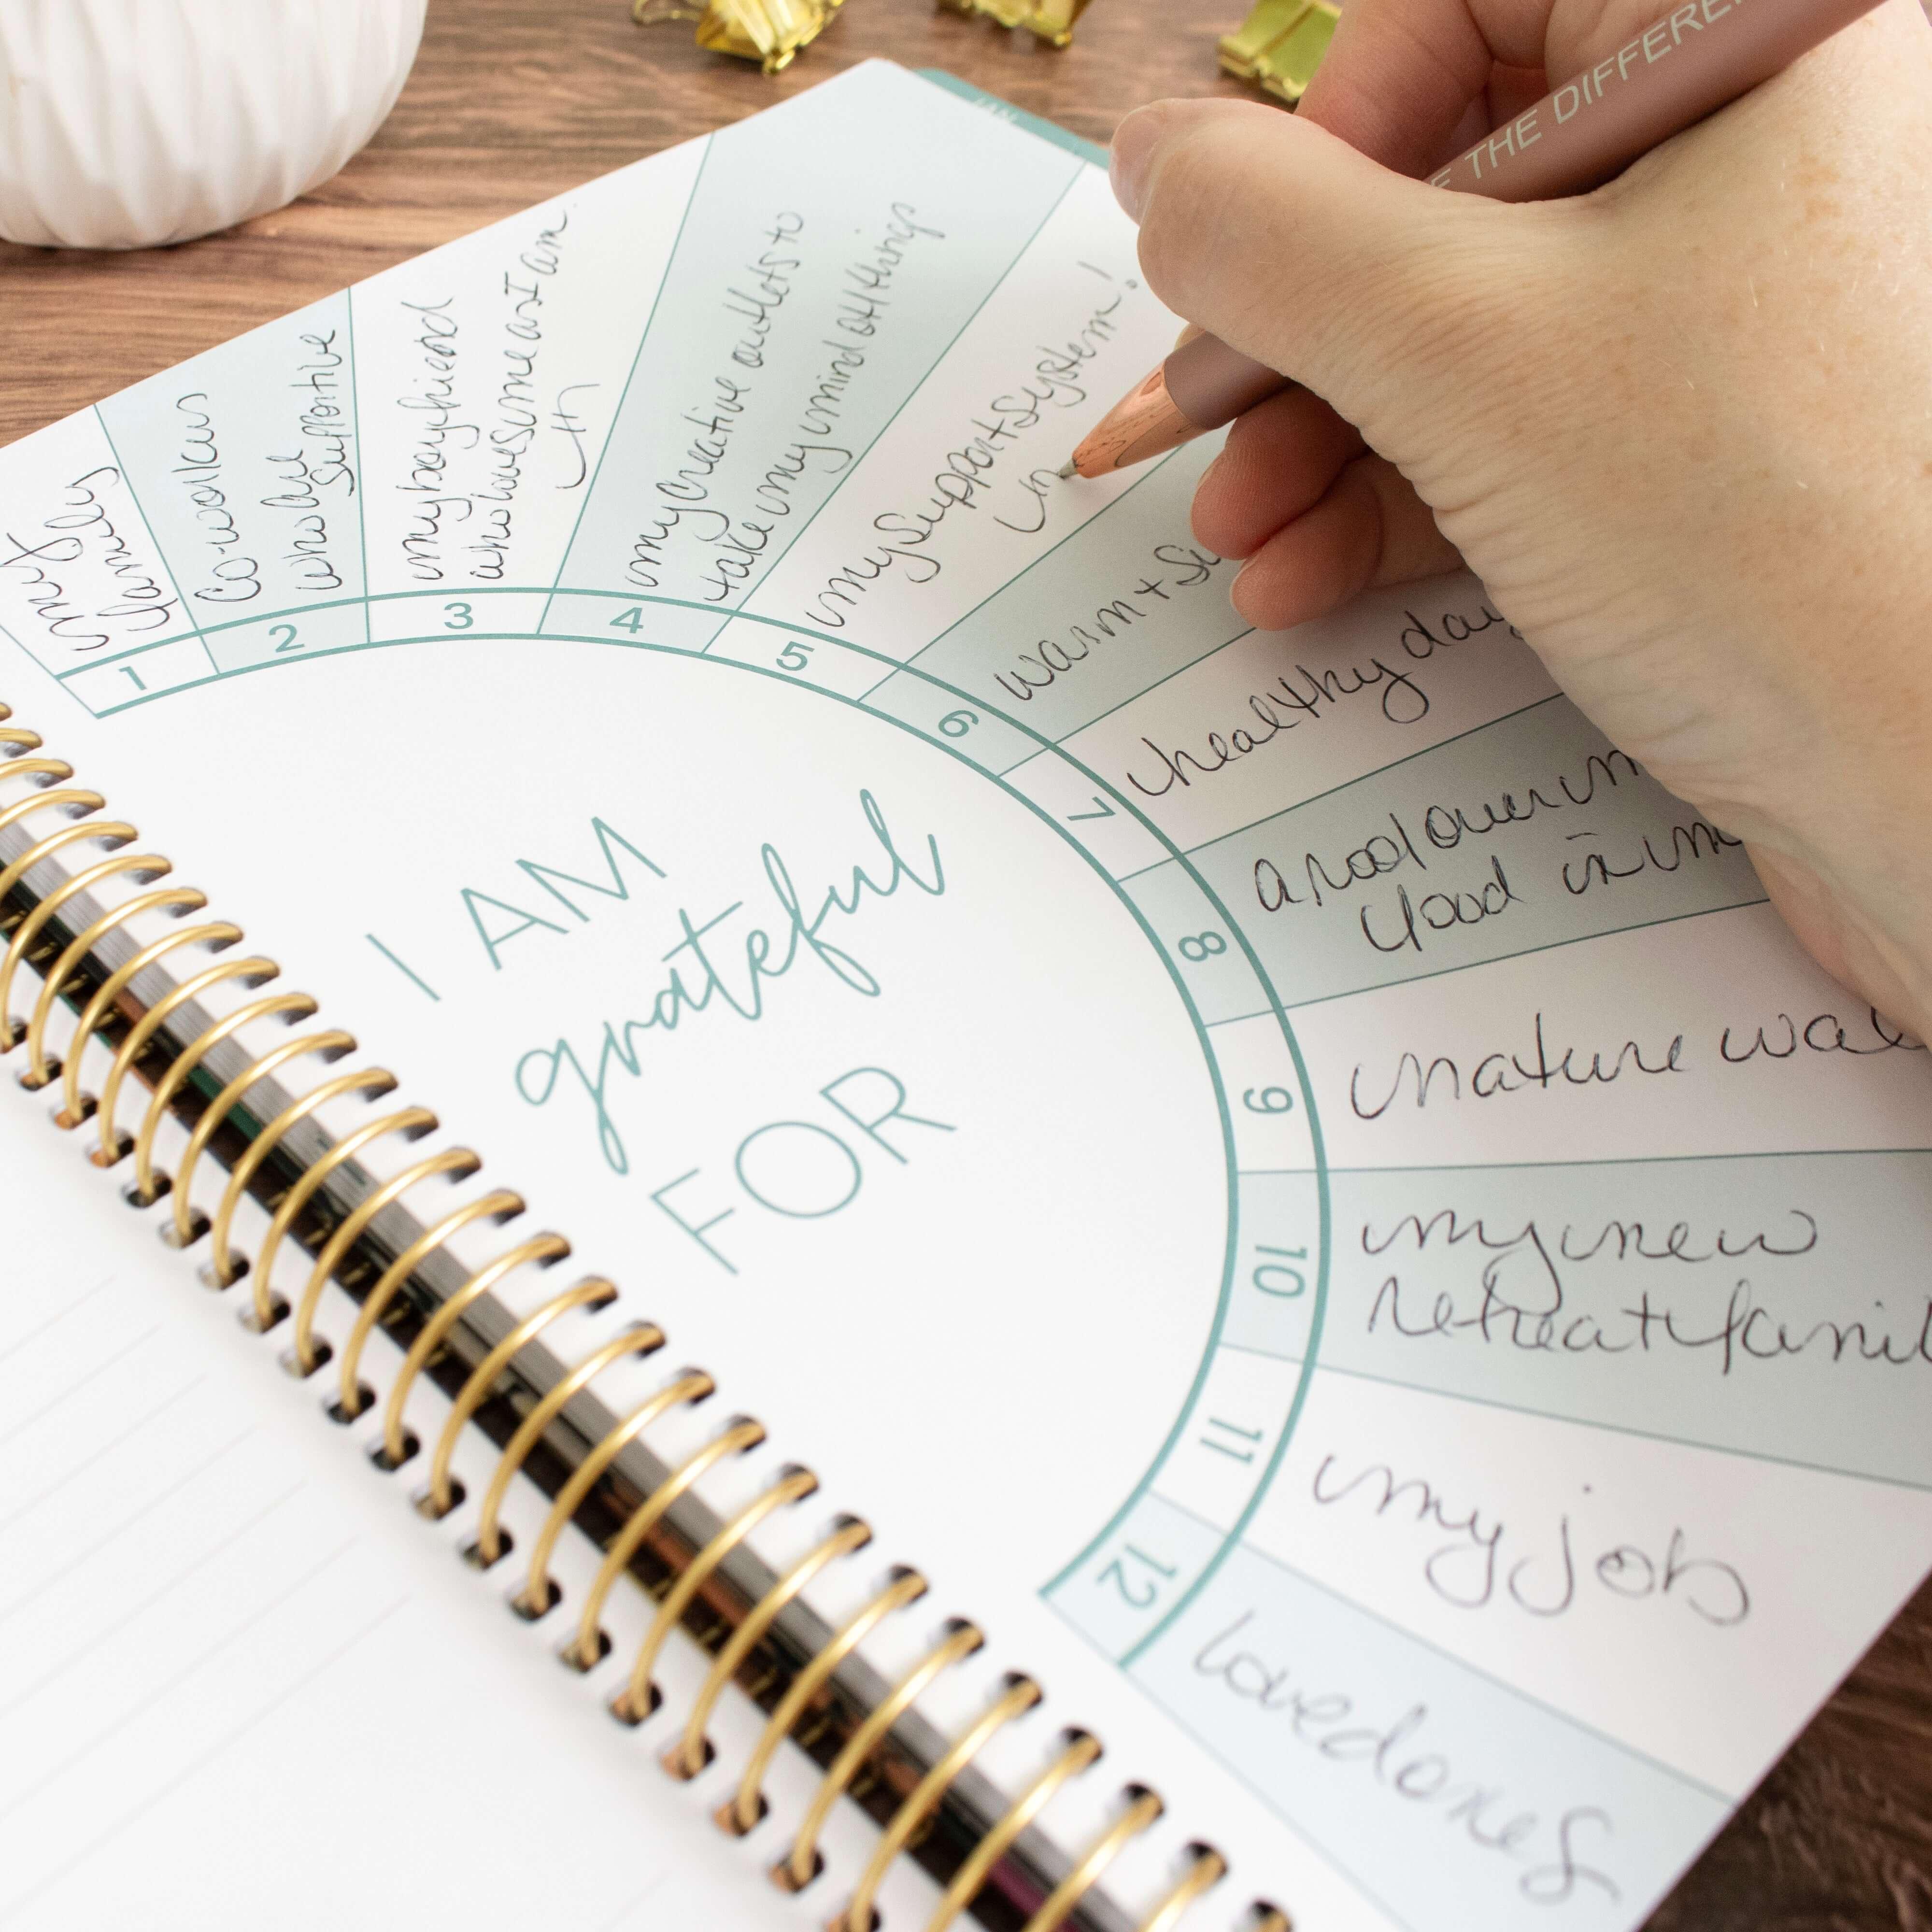 THE DIFFERE
I AM
grateful
FOR
1
my
family
2
Co-workers
who are
supportive
3
my boyfriend
who loves me as I am
4
my creative outlets to
take my mind off things
5
my support system!
6
warm + su
7
healthy day
8
a roof over m
food in m
9
nature wal
10
my new
retreat famil
11
my job
12
loved ones